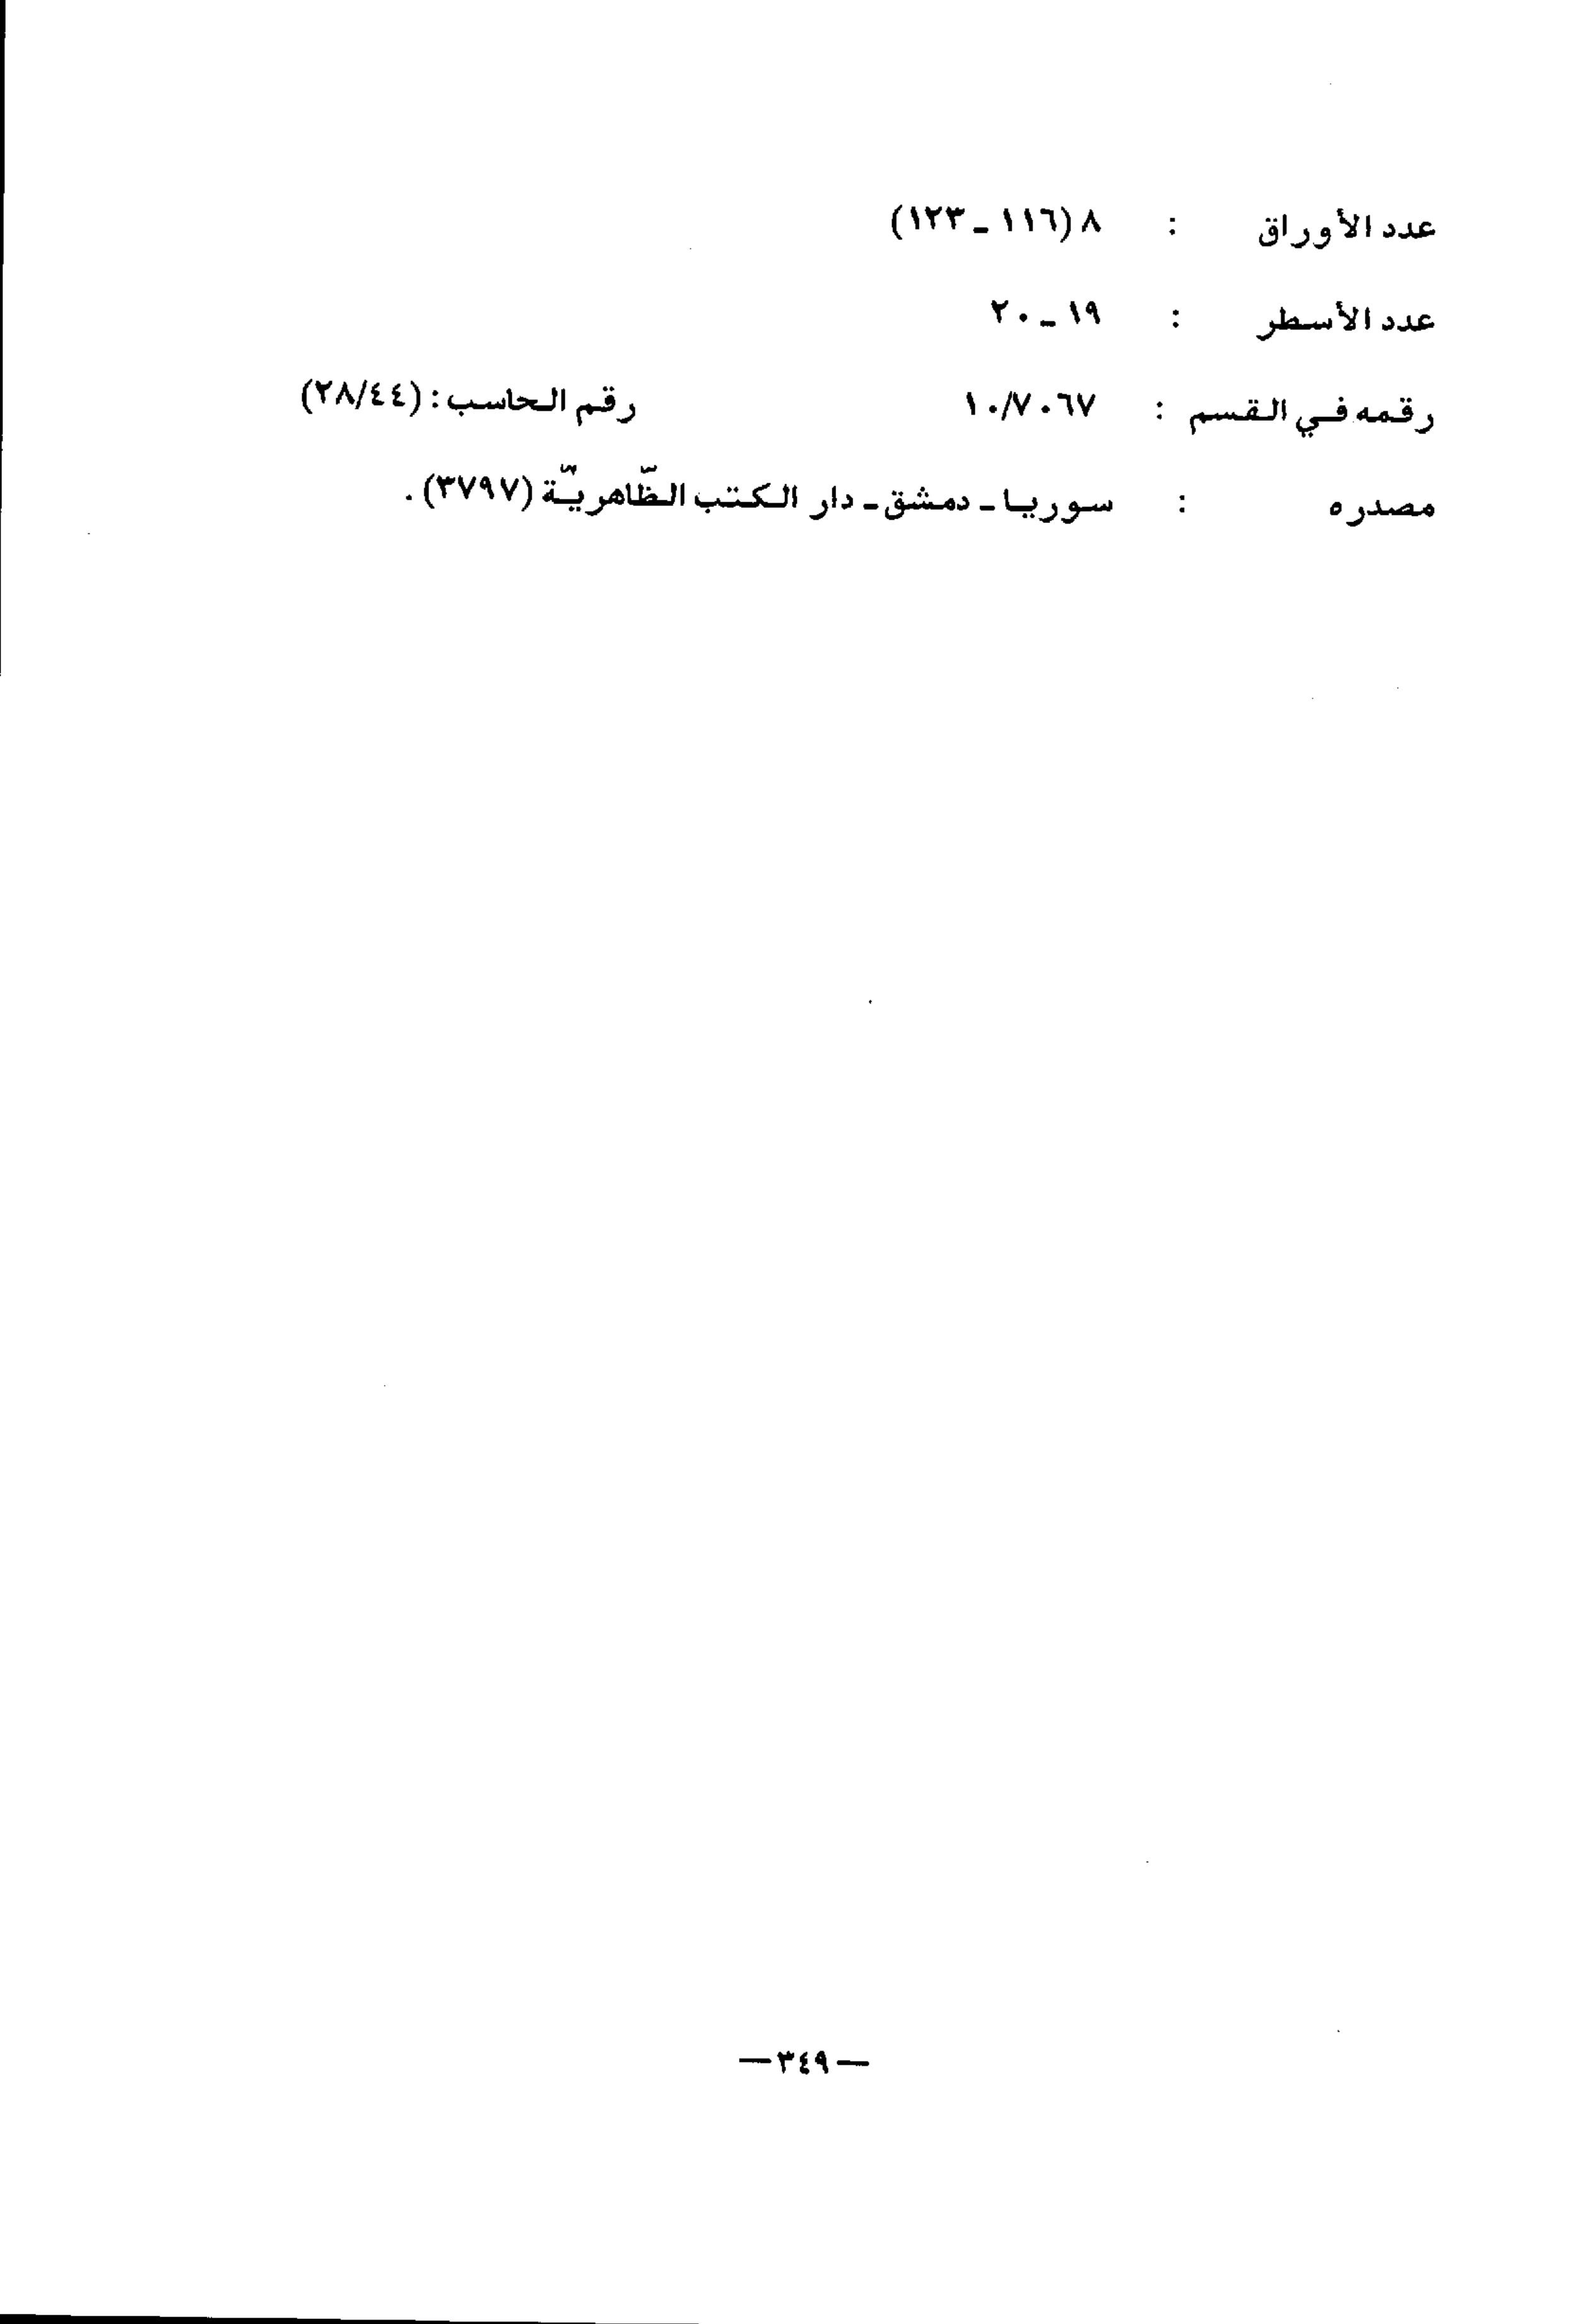 عدد الأوراق : ٨ (١١٦ ـ ١٢٣)
عدد الأسطر : ١٩ ـ ٢٠
رقمه في القسم : ١٠/٧٠٦٧ رقم الحاسب : (٢٨/٤٤)
مصدره : سوريا ـ دمشق ـ دار الكتب الظّاهريّة (٣٧٩٧) .
—٣٤٩—